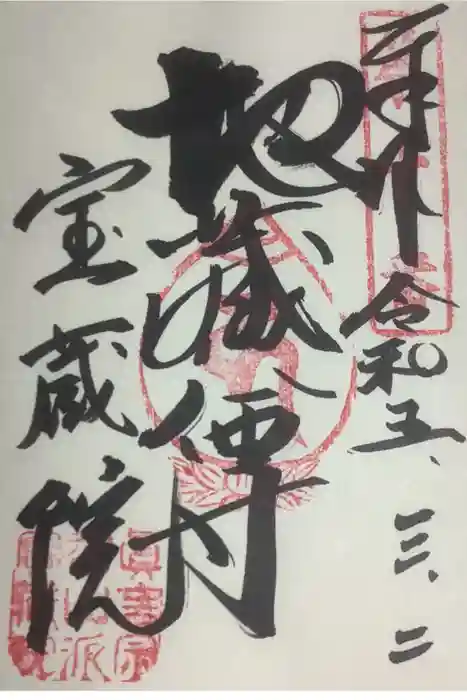 奉拝
令和五、三、二
地蔵尊
宝蔵院
真言宗